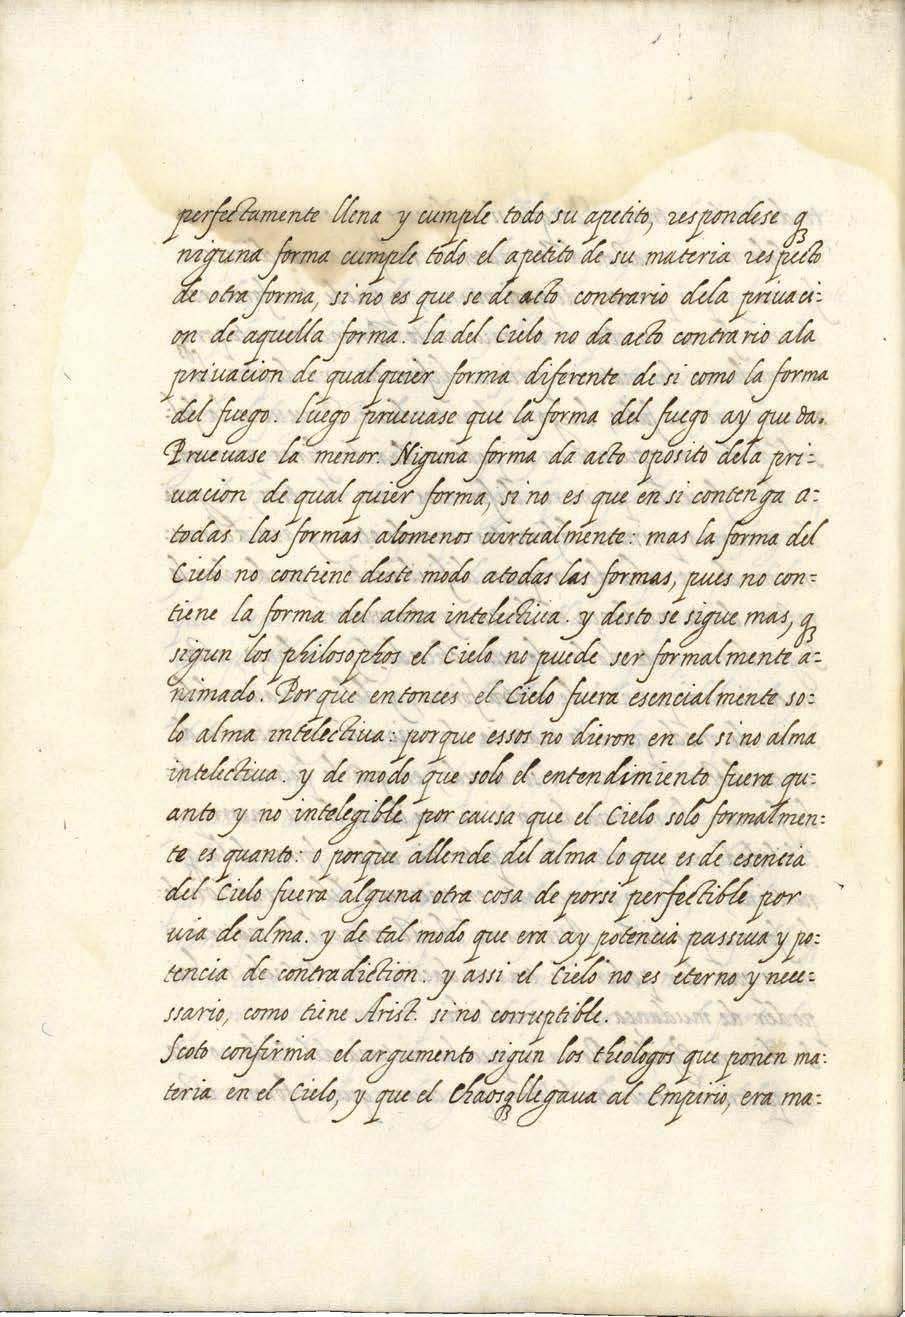 perfectamente llena y cumple todo su apetito, respondese q
niguna forma cumple todo el apetito de su materia respecto
de otra forma, si no es que se de acto contrario dela privaci-
on de aquella forma. la del Cielo no da acto contrario ala
privacion de qualquier forma diferente de si como la forma
del fuego. luego pruevase que la forma del fuego ay que da.
Pruevase la menor. Niguna forma da acto oposito dela pri-
vacion de qual quier forma, si no es que en si contenga a-
todas las formas alomenos virtualmente: mas la forma del
Cielo no contiene deste modo atodas las formas, pues no con-
tiene la forma del alma intelectiva. y desto se sigue mas, q
sigun los philosophos el Cielo no puede ser formalmente a-
nimado. Porque entonces el Cielo fuera esencialmente so-
lo alma intelectiva: porque essos no dieron en el si no alma
intelectiva. y de modo que solo el entendimiento fuera qu-
anto y no intelegible por causa que el Cielo solo formalmen-
te es quanto: o porque allende del alma lo que es de esencia
del Cielo fuera alguna otra cosa de porsi perfectible por
via de alma. y de tal modo que era ay potencia passiva y po-
tencia de contradiction: y assi el Cielo no es eterno y nece-
ssario, como tiene Arist. si no corruptible.
Scoto confirma el argumento sigun los theologos que ponen ma-
teria en el Cielo, y que el Chaos q llegava al Empirio, era ma-